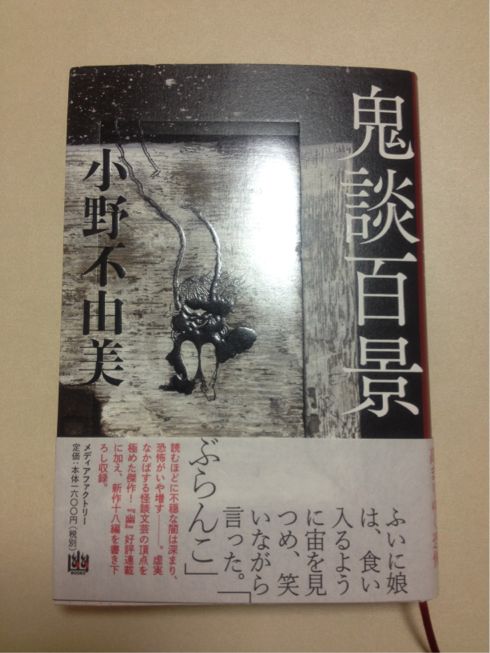 鬼談百景
小野不由美
ふいに娘
は、食い
入るよう
に宙を見
つめ、笑
いながら
言った。「
ぶらんこ」
読むほどに不穏な闇は深まり、
恐怖がいや増す――。虚実
なかばする怪談文芸の頂点を
極めた傑作!『幽』好評連載
に加え、新作十八編を書き下
ろし収録。
メディアファクトリー
定価:本体一六〇〇円(税別)
BOOKS